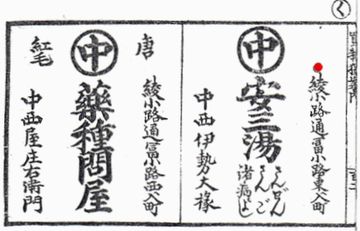 く
綾小路通冨小路東入町
中
安三湯
さんぜん
さんご
諸病よし
中西伊勢大掾
綾小路通冨小路西入町
唐
紅毛
中
藥種問屋
中西屋庄右衛門